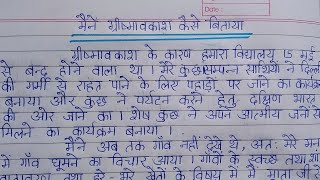 Date :
मैनें ग्रीष्मावकाश कैसे बिताया
ग्रीष्मावकाश के कारण हमारा विद्यालय 15 मई
से बन्द होने वाला था । मेरे कुछ सम्पन्न साथियों ने दिल्ली
की गर्मी से राहत पाने के लिए पहाड़ों पर जाने का कार्यक्रम
बनाया और कुछ ने पर्यटन करने हेतु दक्षिण भारत
की ओर जाने का । शेष कुछ ने अपने आत्मीय जनों से
मिलने का कार्यक्रम बनाया ।
मैंने अब तक गाँव नहीं देखे थे, अतः मेरे मन
में गाँव घूमने का विचार आया । गाँवों के स्वच्छ तथा
तथा हरे - भरे खेतों के विषय में मैं माता जी से